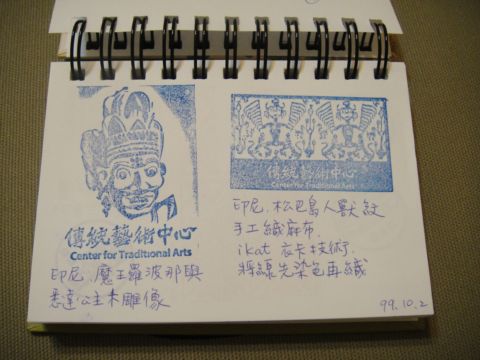 傳統藝術中心
Center for Traditional Arts
印尼. 魔王羅波那與
悉達公主木雕像
傳統藝術中心
Center for Traditional Arts
印尼. 松巴島人獸紋
手工織麻布.
ikat 衣卡技術.
將線先染色再織
99.10.2